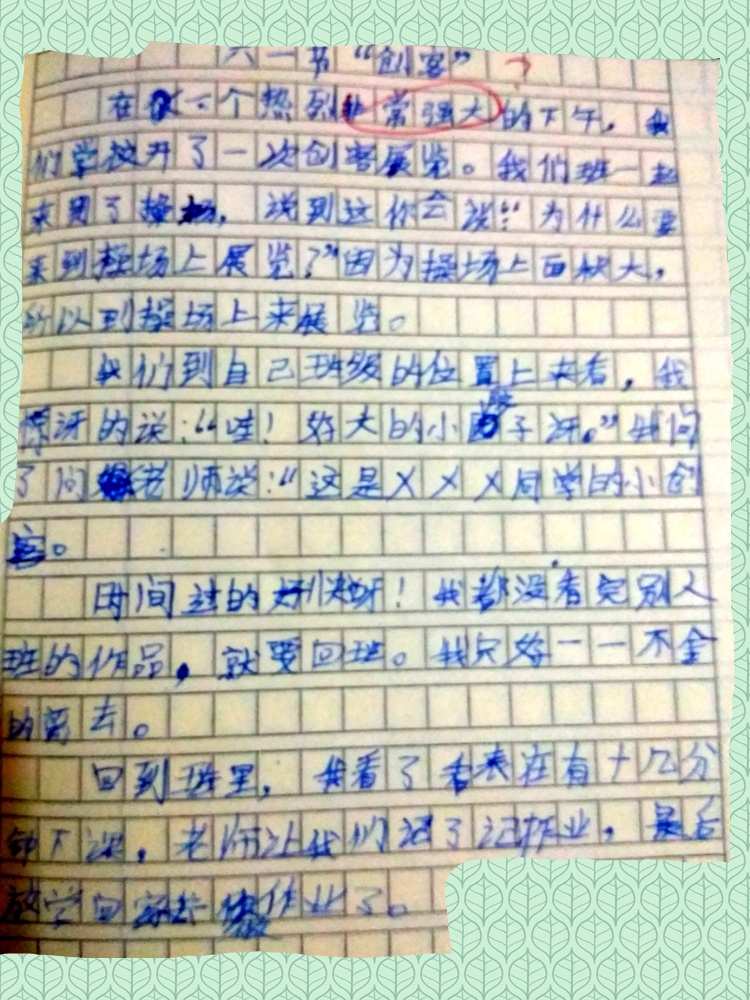 六一节“创客”
在一个热烈非常强大的下午，我
们学校开了一次创客展览。我们班一起
来到了操场，说到这你会说：“为什么要
来到操场上展览？”因为操场上面积大，
所以到操场上来展览。
我们到自己班级的位置上来看，我
惊讶的说：“哇！好大的小房子呀。”我问
了问老师说：“这是XXX同学的小创
客。
时间过的好快呀！我都没看完别人
班的作品，就要回班。我只好一一不舍
的离去。
回到班里，我看了看表在有十几分
钟下课，老师让我们记了记作业，最后
放学回家去做作业了。